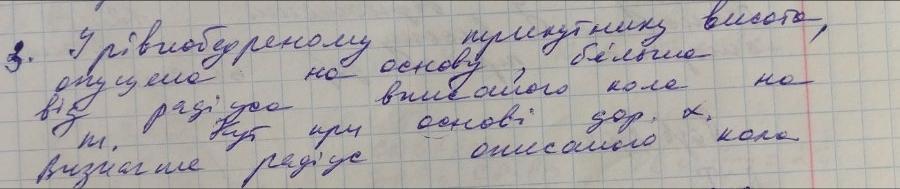 3. У рівнобедреному трикутнику висота,
опущена на основу, більша
від радіуса вписаного кола на
m. Кут при основі дор. α.
Визначте радіус описаного кола